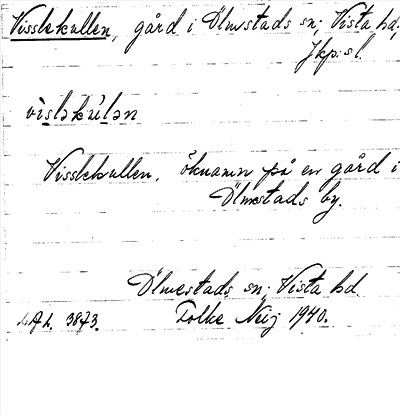 Visslekullen, gård i Ölmstads sn; Vista hd.
Jkp:sl.
vìsləkúlən
Visslekullen. öknamn på en gård i
Ölmstads by.
Ölmestads sn; Vista hd.
3873. Folke Neij 1940.